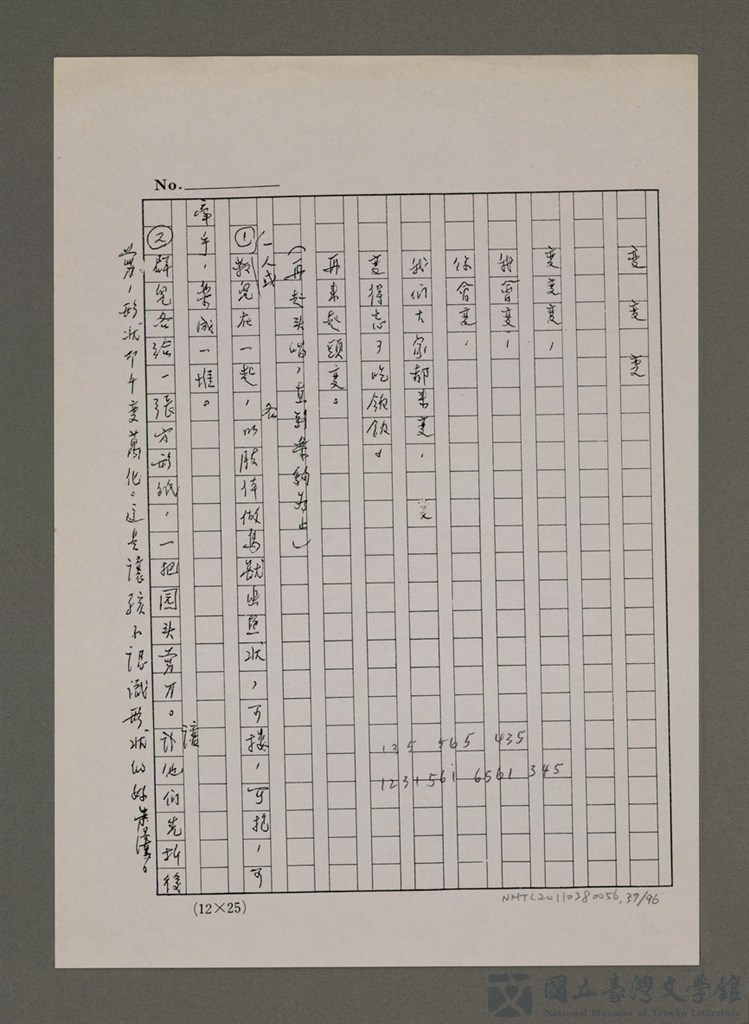 No.
變 變 變
變變變，
我會變，
你會變，
我們大家都來變，
變得忘了吃飯飲。
再來起頭變。
（再起头唱，直到
止）
一人或
①
兒在一起，以肢体做鳥獸
狀，可摟，可抱，可
各
牽手，集成一堆。
②群兒各給一張方形紙，一把圆头剪刀。讓他們先折後
剪，形狀即千變萬化。這是讓孩子認識形狀的好
。
125 565 435
1231561 6561 345
(12×25)
NMTL20110380056,37/96
國立臺灣文學館
National Museum of Taiwan Literature